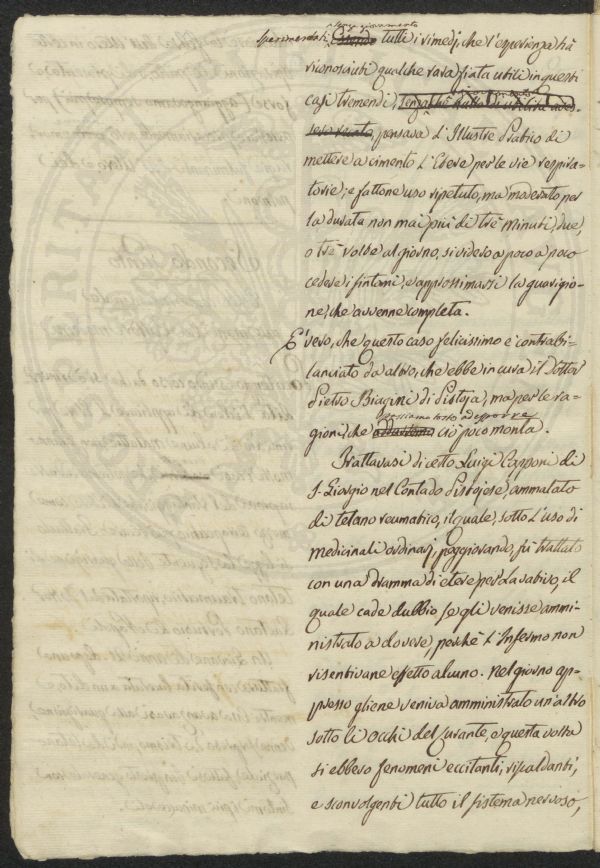 senza giovamento
sperimentati tutti i rimedj, che l'esperienza hà
riconosciuti qualche rara fiata utili in questi
casi tremendi, pensava l'Illustre Pratico di
mettere a cimento l'Etere per le vie respira-
torie; e fattone uso ripetuto, ma moderato per
la durata non mai più di trè minuti, due,
o trè volte al giorno, si videro a poco a poco
cedere i sintomi, e approssimarsi la guarigio-
ne, che avvenne completa.
E' vero, che questo caso felicissimo è contrabi-
lanciato da altro, che ebbe in cura il Dottor
Pietro Biagini di Pistoja, ma per le ra-
passiamo tosto ad esporre
gioni, che ciò poco monta.
Trattavasi di certo Luigi Capponi di
S. Giorgio nel Contado Pistojese, ammalato
di tetano reumatico, il quale, sotto l'uso di
medicinali ordinarj, peggiorando, fù trattato
con una dramma di etere per lavativo, il
quale cade dubbio se gli venisse ammi-
nistrato a dovere, perchè l'Infermo non
risentivane effetto alcuno. Nel giorno ap-
presso gliene veniva amministrato un'altro
sotto li occhi del Curante, e questa volta
si ebbero fenomeni eccitanti, riscaldanti,
e sconvolgenti tutto il sistema nervoso,